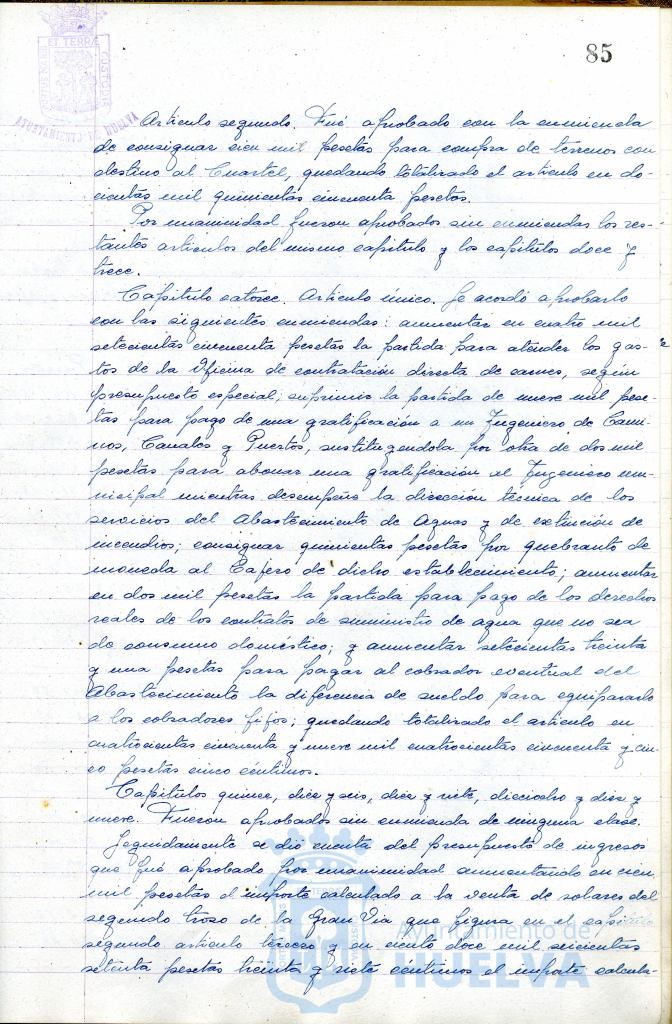 85
ET TERRÆ
CUSTODIA
AYUNTAMIENTO DE HUELVA
Articulo segundo. Fué aprobado con la enmienda
de consignar cien mil pesetas para compra de terrenos con
destino al Cuartel, quedando totalizado el articulo en do-
cientas mil quinientas cincuenta pesetas.
Por unanimidad fueron aprobados sin enmiendas los res-
tantes articulos del mismo capitulo y los capitulos doce y
trece.
Capitulo catorce. Articulo único. Se acordó aprobarlo
con las siguientes enmiendas: aumentar en cuatro mil
setecientas cincuenta pesetas la partida para atender los gas-
tos de la Oficina de contratación directa de carnes, según
presupuesto especial; suprimir la partida de nueve mil pese-
tas para pago de una gratificación a un Ingeniero de Cami-
nos, Canales y Puertos, sustituyendola por otra de dos mil
pesetas para abonar una gratificación al Ingeniero mu-
nicipal mientras desempeñe la dirección técnica de los
servicios del Abastecimiento de Aguas y de extinción de
incendios; consignar quinientas pesetas por quebranto de
moneda al Cajero de dicho establecimiento; aumentar
en dos mil pesetas la partida para pago de los derechos
reales de los contratos de suministro de agua que no sea
de consumo doméstico; y aumentar setecientas treinta
y una pesetas para pagar al cobrador eventual del
Abastecimiento la diferencia de sueldo para equipararlo
a los cobradores fijos; quedando totalizado el articulo en
cuatrocientas cincuenta y nueve mil cuatrocientas cincuenta y cin-
co pesetas cinco céntimos.
Capitulos quince, diez y seis, diez y siete, dieciocho y diez y
nueve. Fueron aprobados sin enmienda de ninguna clase.
Seguidamente se dió cuenta del presupuesto de ingresos
que fué aprobado por unanimidad aumentando en cien
mil pesetas el importe calculado a la venta de solares del
segundo trozo de la Gran Via que figura en el capitulo
segundo articulo tercero y en ciento doce mil seiscientas
setenta pesetas treinta y siete centimos el importe calcula-
Ayuntamiento de
HUELVA